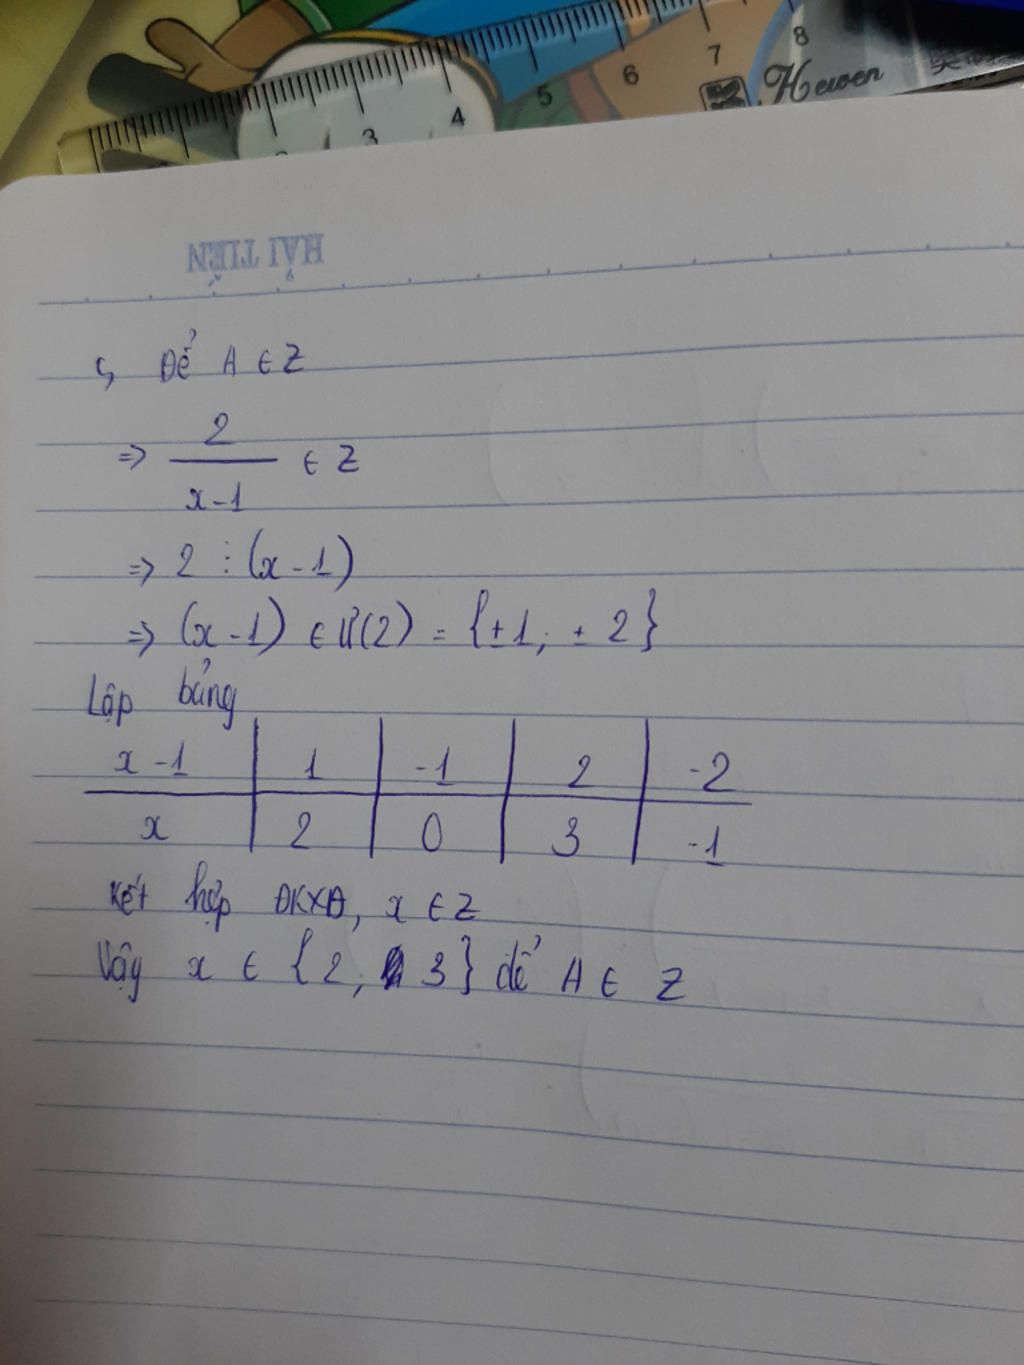 3 4 5 6 7 8
Hewen
HẢI TIẾN
c, Để A ∈ Z
=> 2/(x-1) ∈ Z
=> 2 ⋮ (x-1)
=> (x-1) ∈ Ư(2) = {±1; ±2}
Lập bảng
x-1 | 1 | -1 | 2 | -2
x | 2 | 0 | 3 | -1
Kết hợp ĐKXĐ, x ∈ Z
Vậy x ∈ {2, 3} để A ∈ Z